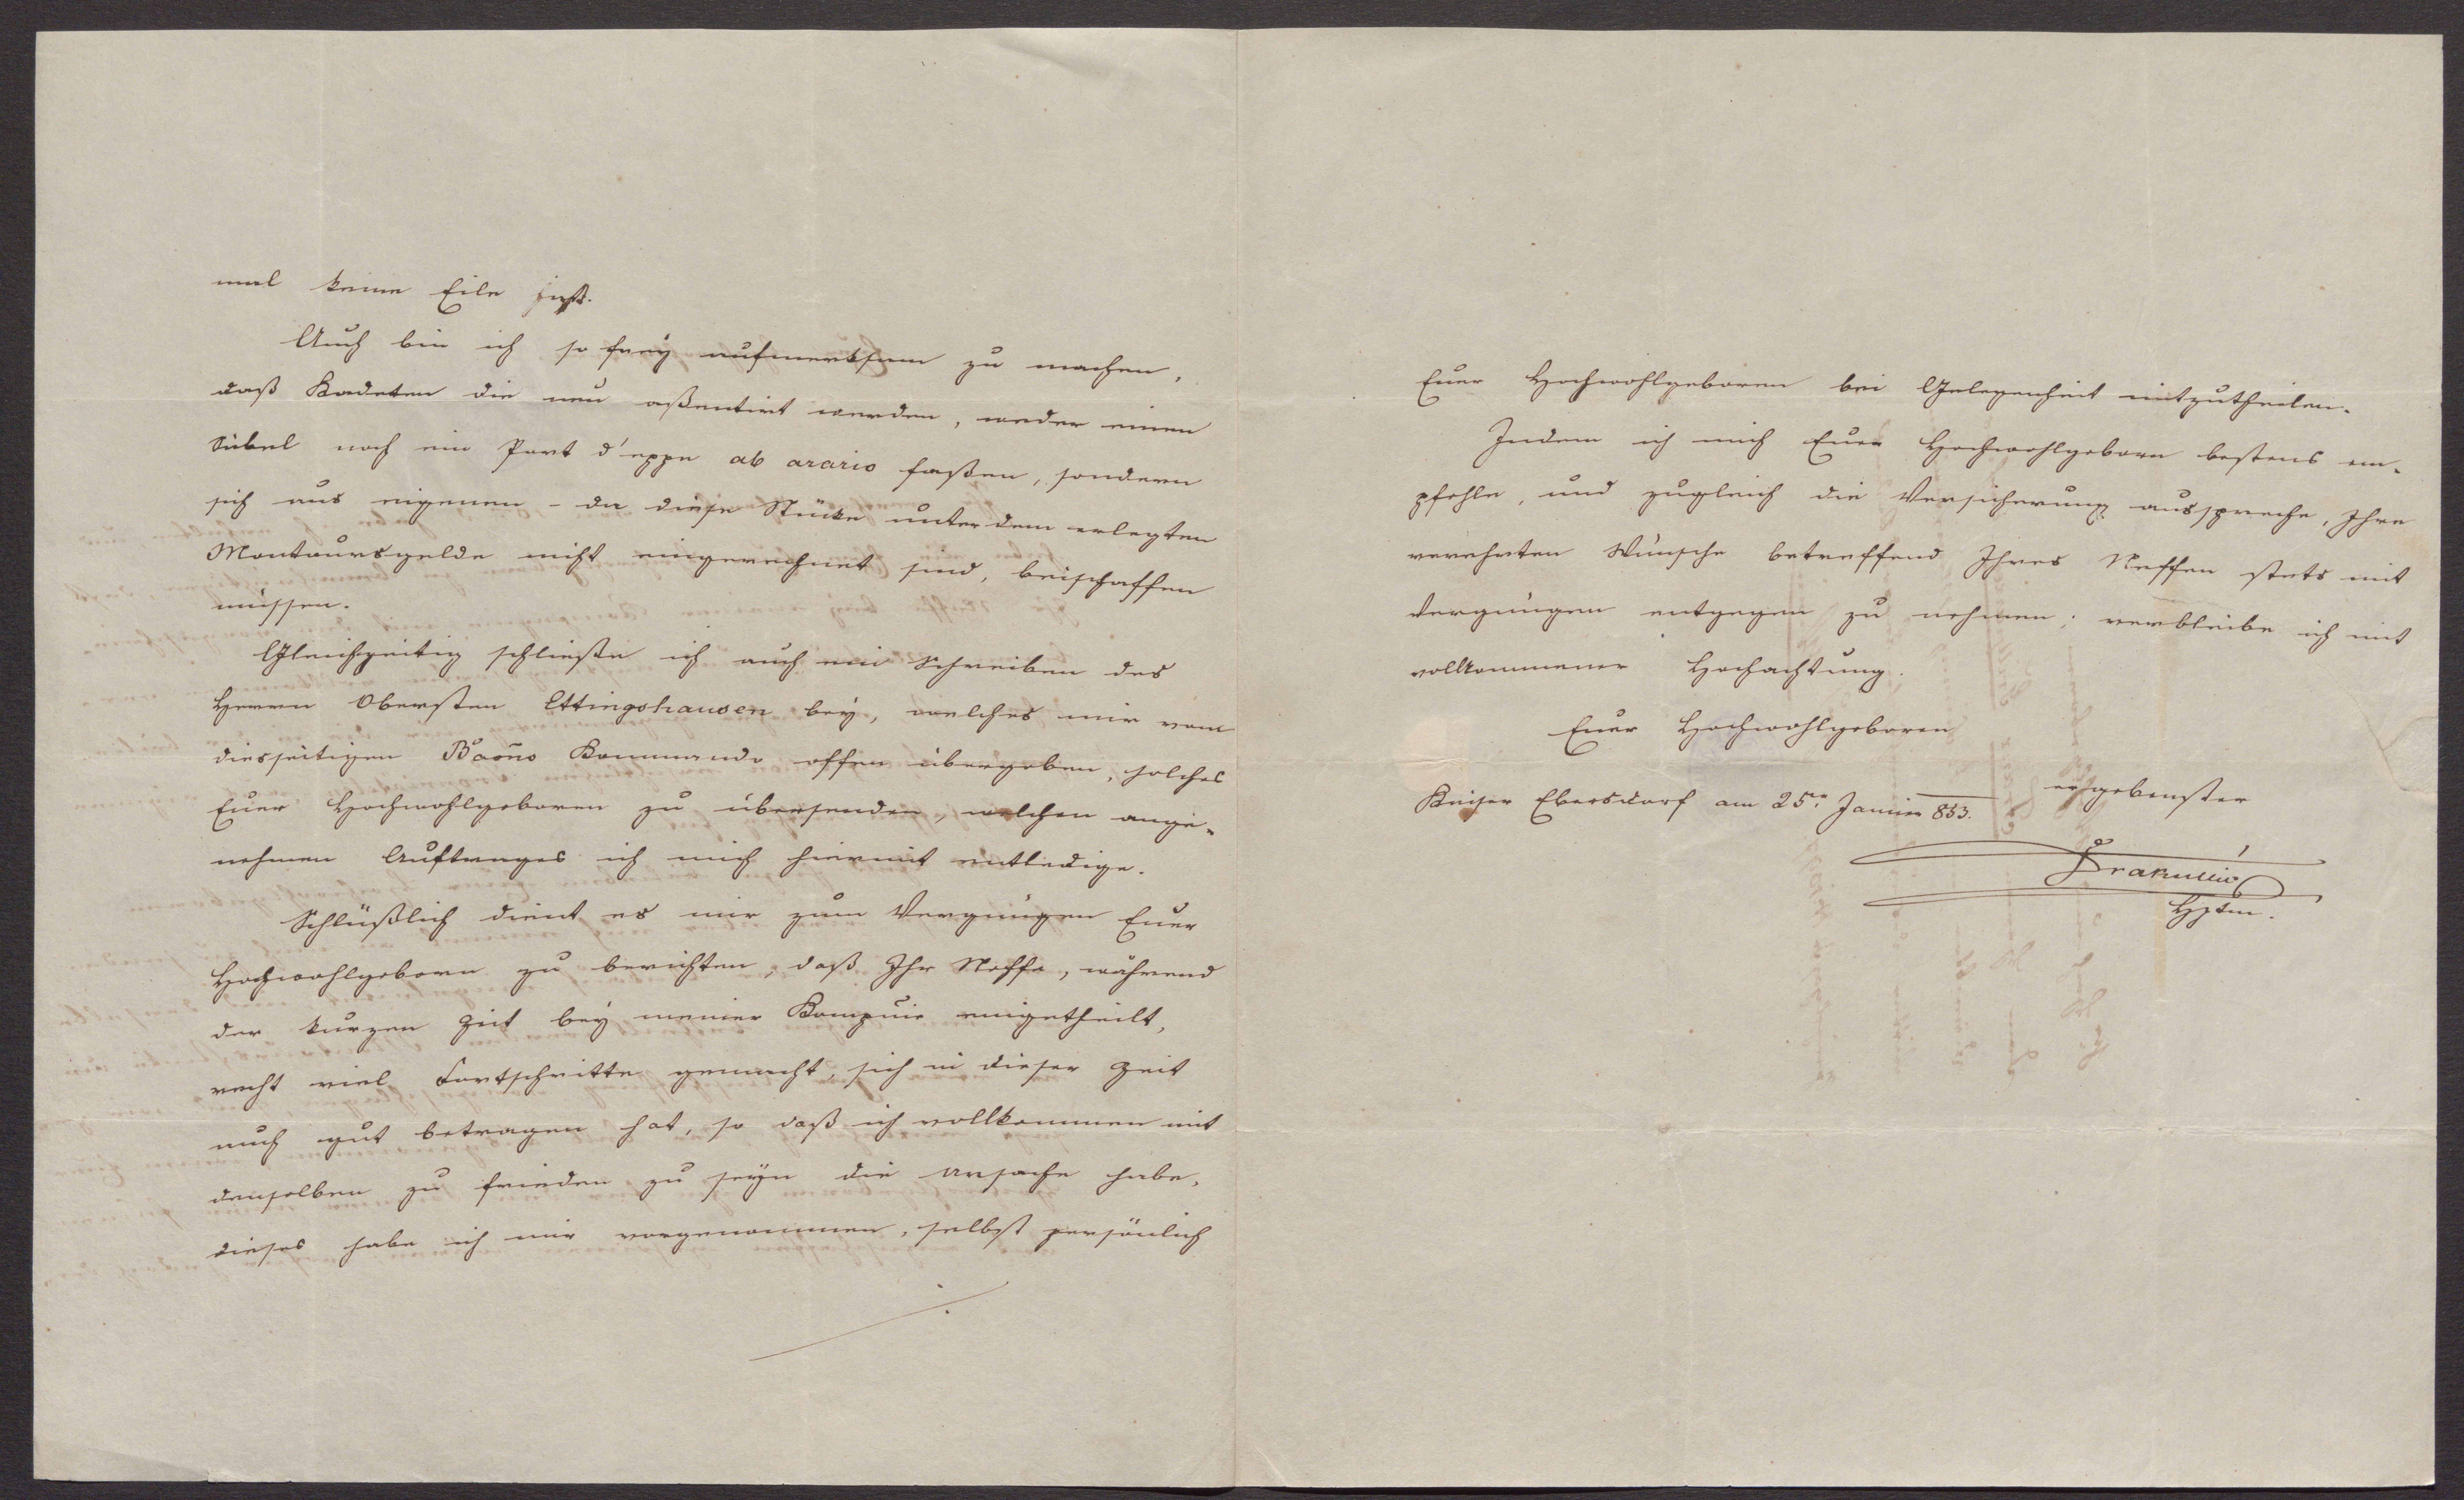 mal keine Eile hat.
Auch bin ich so frey aufmerksam zu machen,
daß Kadeten die neu aßentirt werden, weder einen
Säbel noch ein Port d'eppe ab arario faßen, sondern
sich aus eigenen - da diese Stücke unter dem erlegten
Montoursgelde nicht eingerechnet sind, beischaffen
müssen.
Gleichzeitig schließe ich auch ein Schreiben des
Herrn Obersten Ettingshausen bey, welches mir vom
diesseitigen Baons Kommando offen übergeben, solches
Euer Hochwohlgeboren zu übersenden, welchen ange-
nehmen Auftrages ich mich hiermit entledige.
Schlüßlich dient es mir zum Vergnügen Euer
Hochwohlgeborn zu berichten, daß Ihr Neffe, während
der kurzen Zeit bey meiner Kompnie eingetheilt,
recht viel Fortschritte gemacht, sich in dieser Zeit
auch gut betragen hat, so daß ich vollkommen mit
denselben zu frieden zu seyn die Ursache habe,
dieses habe ich mir vorgenommen, selbst persönlich
Euer Hochwohlgeboren bei Gelegenheit mitzutheilen.
Indem ich mich Euer Hochwohlgeborn bestens em-
pfehle, und zugleich die Versicherung ausspreche, Ihre
verehrten Wünsche betreffend Ihres Neffen stets mit
Vergnügen entgegen zu nehmen; verbleibe ich mit
vollkommener Hochachtung.
Euer Hochwohlgeboren
ergebenster
Kaiser Ebersdorf am 25er Jannier 853.
Drakulić
Hptm.